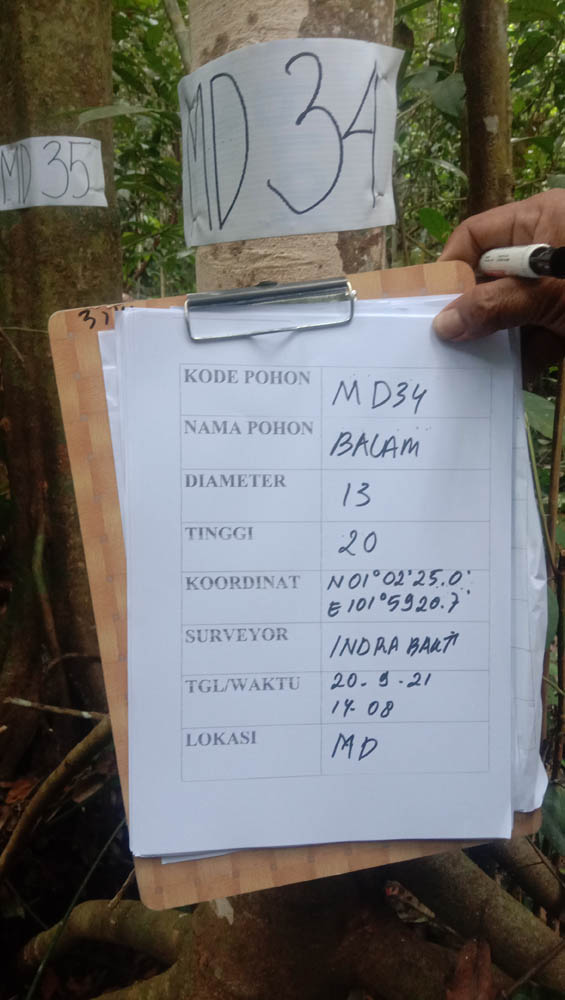 MD 34
MD 35
KODE POHON MD34
NAMA POHON BALAM
DIAMETER 13
TINGGI 20
KOORDINAT N 01°02'25.0"
E 101°59'20.7"
SURVEYOR INDRA BAKTI
TGL/WAKTU 20-9-21
14-08
LOKASI MD